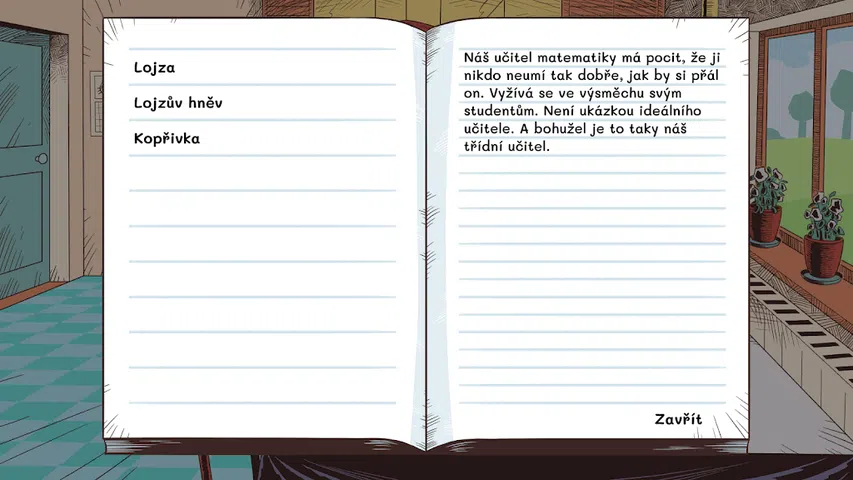 Lojza
Lojzův hněv
Kopřivka
Náš učitel matematiky má pocit, že ji
nikdo neumí tak dobře, jak by si přál
on. Vyžívá se ve výsměchu svým
studentům. Není ukázkou ideálního
učitele. A bohužel je to taky náš
třídní učitel.
Zavřít